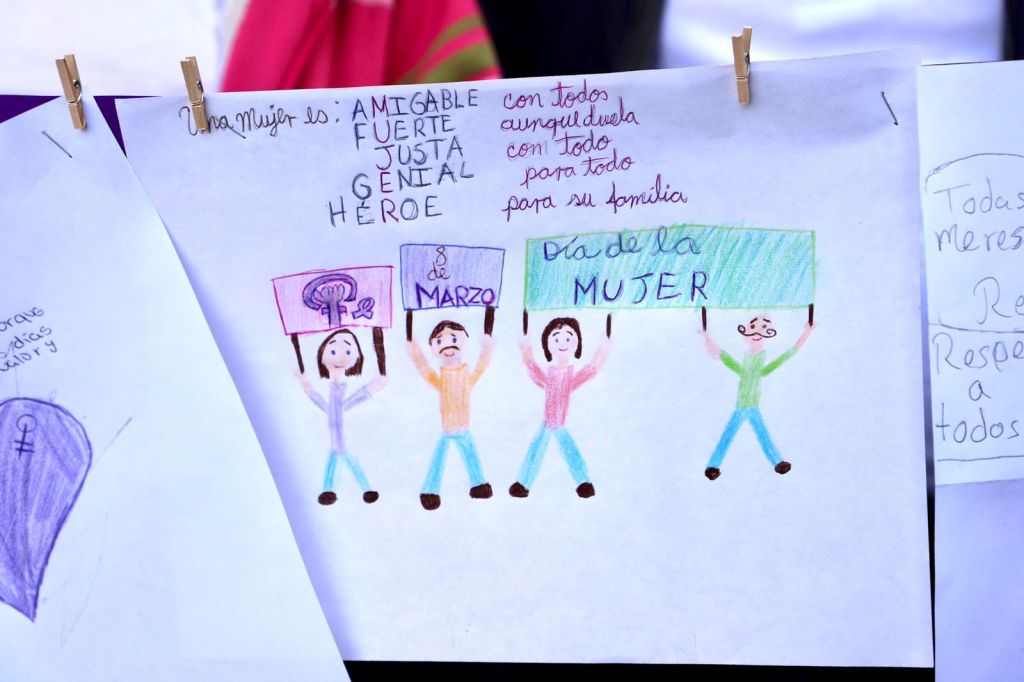 Una Mujer es: AMIGABLE con todos
FUERTE aunque duela
JUSTA con todo
GENIAL para todo
HÉROE para su familia
8
de
MARZO
Día de la
MUJER
Todas
meres
Re
Respe
a
todos